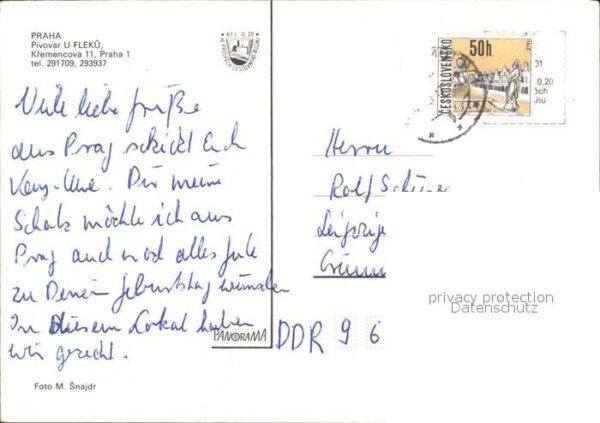 PRAHA
Pivovar U FLEKŮ,
Křemencova 11, Praha 1
tel. 291709, 293937
Kčs 0,20
ČESKOSLOVENSKO
50h
31
0,20
ěch
ihu
Viele liebe Grüße
aus Prag schickt Euch
Uwe. Dir meine
Schatz möchte ich aus
Prag auch noch alles Gute
zu Deinem Geburtstag wünschen
In diesem Lokal haben
wir gezecht.
Herrn
Rolf
Leipzige
DDR 9 6
PANORAMA
Foto M. Šnajdr
privacy protection
Datenschutz